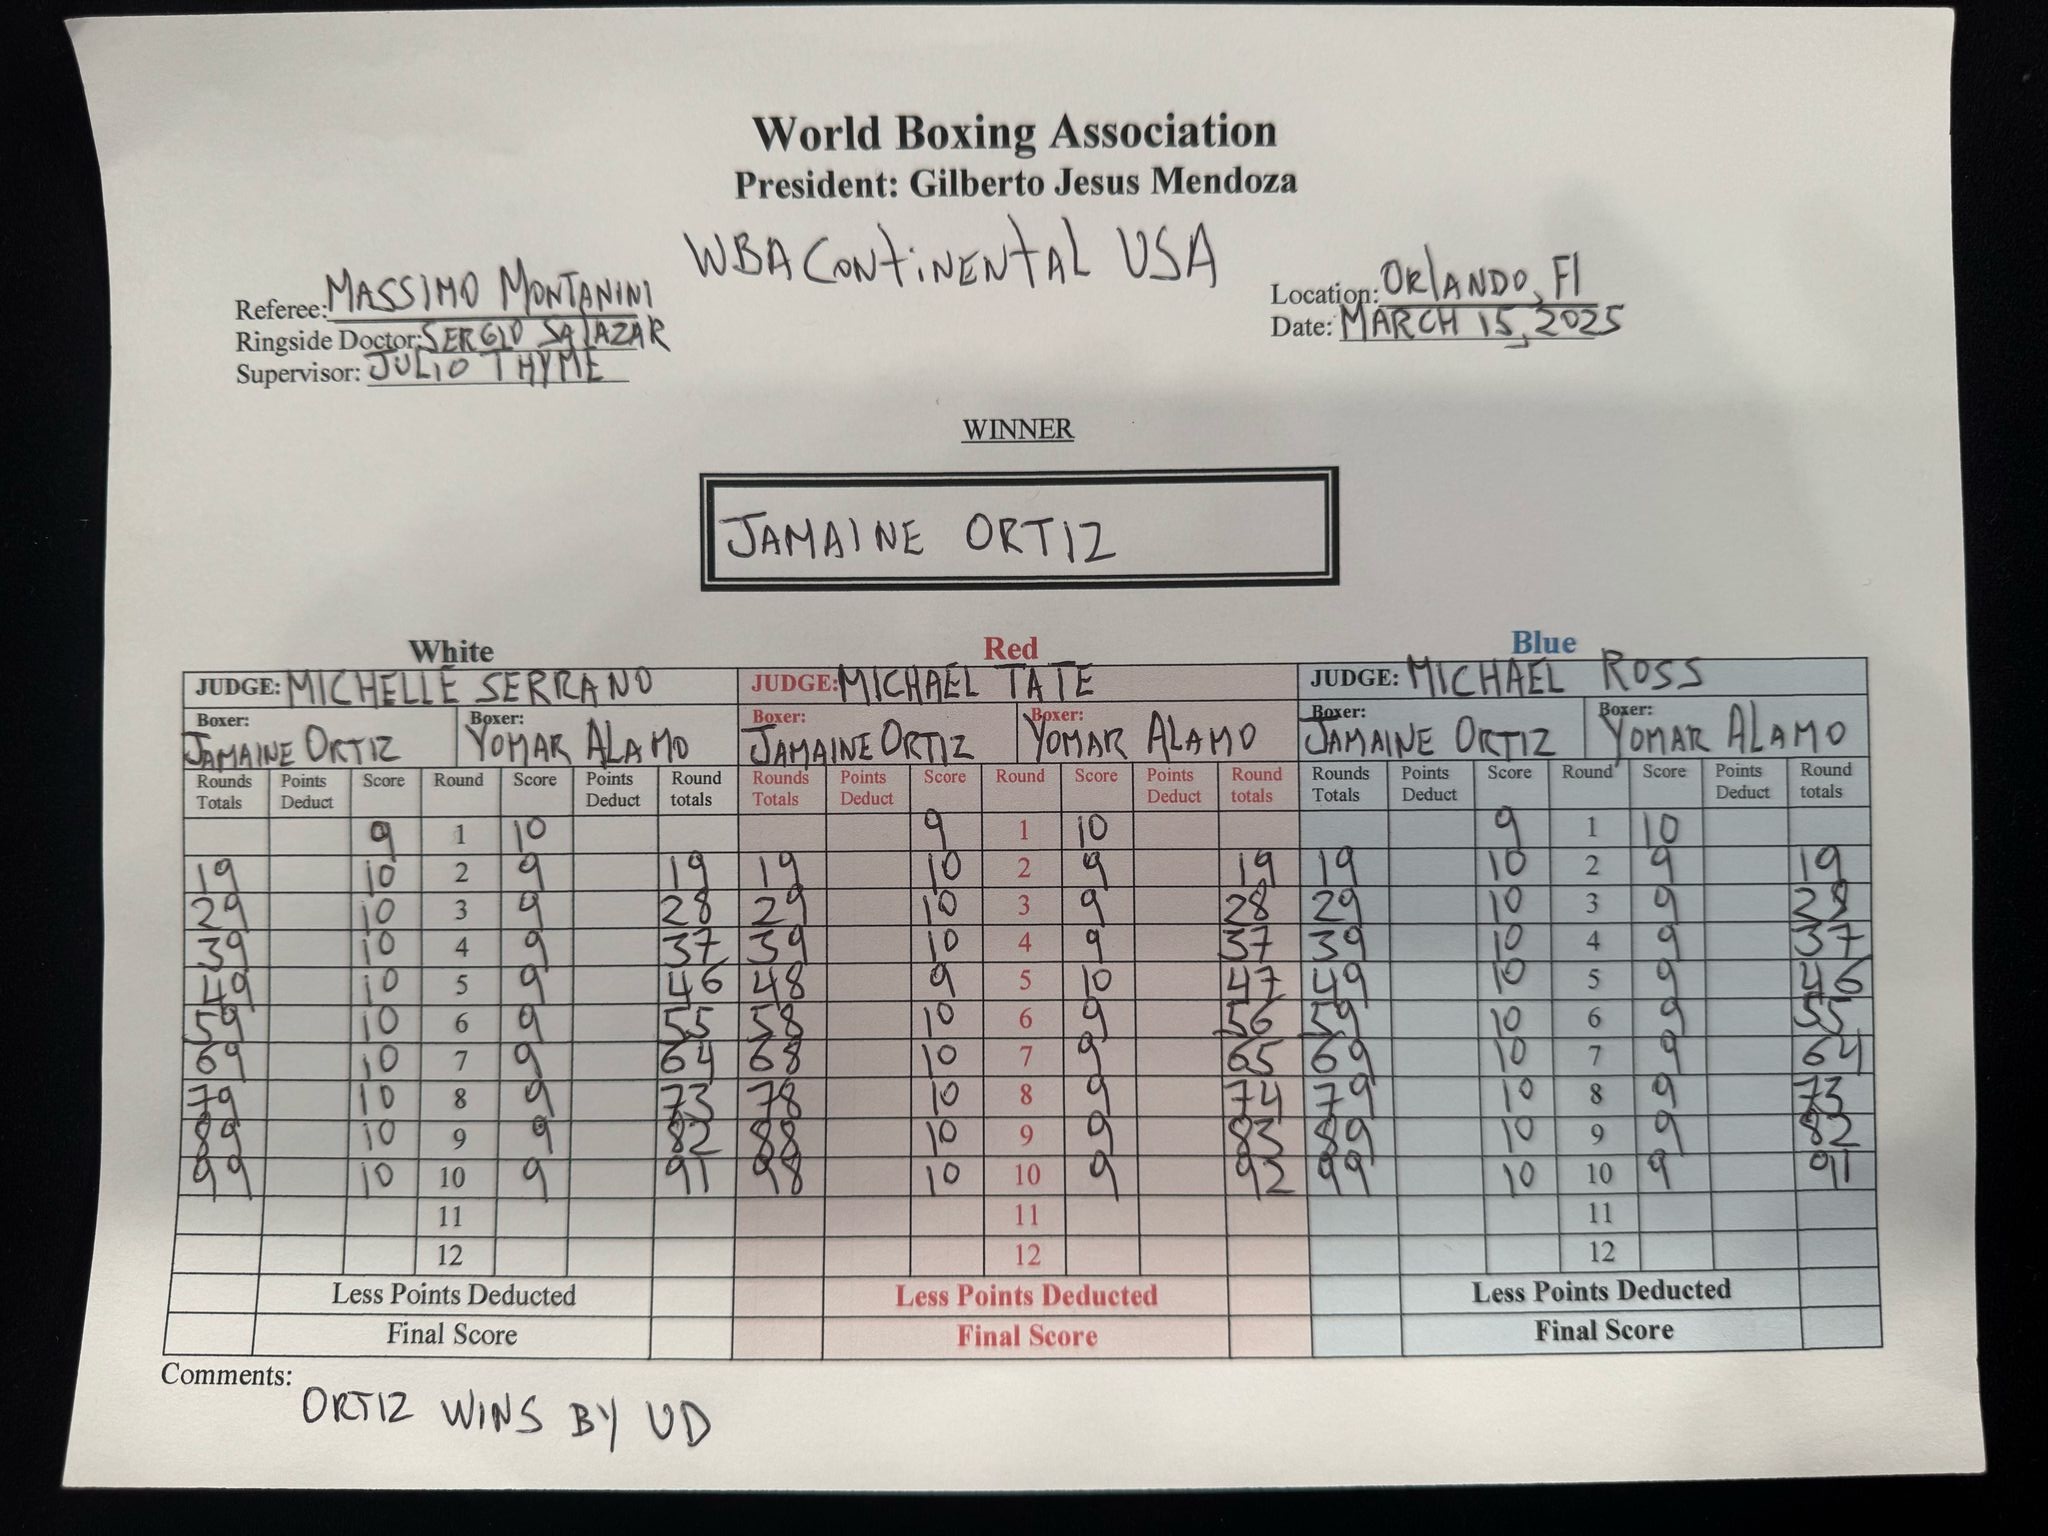 World Boxing Association
President: Gilberto Jesus Mendoza
WBA Continental USA
Referee: MASSIMO MONTANINI
Ringside Doctor: SERGIO SALAZAR
Supervisor: JULIO THYME
Location: ORLANDO, Fl
Date: MARCH 15, 2025
WINNER
JAMAINE ORTIZ
White Red Blue
JUDGE: MICHELLE SERRANO JUDGE: MICHAEL TATE JUDGE: MICHAEL ROSS
Boxer: Boxer: Boxer: Boxer: Boxer: Boxer:
JAMAINE ORTIZ YOMAR ALAMO JAMAINE ORTIZ YOMAR ALAMO JAMAINE ORTIZ YOMAR ALAMO
Rounds Points Score Round Score Points Round Rounds Points Score Round Score Points Round Rounds Points Score Round Score Points Round
Totals Deduct Deduct totals Totals Deduct Deduct totals Totals Deduct Deduct totals
9 1 10 9 1 10 9 1 10
19 10 2 9 19 19 10 2 9 19 19 10 2 9 19
29 10 3 9 28 29 10 3 9 28 29 10 3 9 28
39 10 4 9 37 39 10 4 9 37 39 10 4 9 37
49 10 5 9 46 48 9 5 10 47 49 10 5 9 46
59 10 6 9 55 58 10 6 9 56 59 10 6 9 55
69 10 7 9 64 68 10 7 9 65 69 10 7 9 64
79 10 8 9 73 78 10 8 9 74 79 10 8 9 73
89 10 9 9 82 88 10 9 9 83 89 10 9 9 82
99 10 10 9 91 98 10 10 9 92 99 10 10 9 91
11 11 11
12 12 12
Less Points Deducted Less Points Deducted Less Points Deducted
Final Score Final Score Final Score
Comments:
ORTIZ WINS BY UD